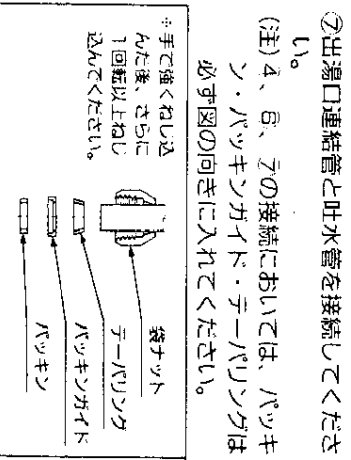 ⑦出湯口連結管と吐水管を接続してくださ
い。
(注)4、6、7の接続においては、パッキ
ン・パッキンガイド・テーパリングは
必ず図の向きに入れてください。
袋ナット
テーパリング
パッキンガイド
パッキン
*手で強くねじ込
んだ後、さらに
1回転以上ねじ
込んでください。